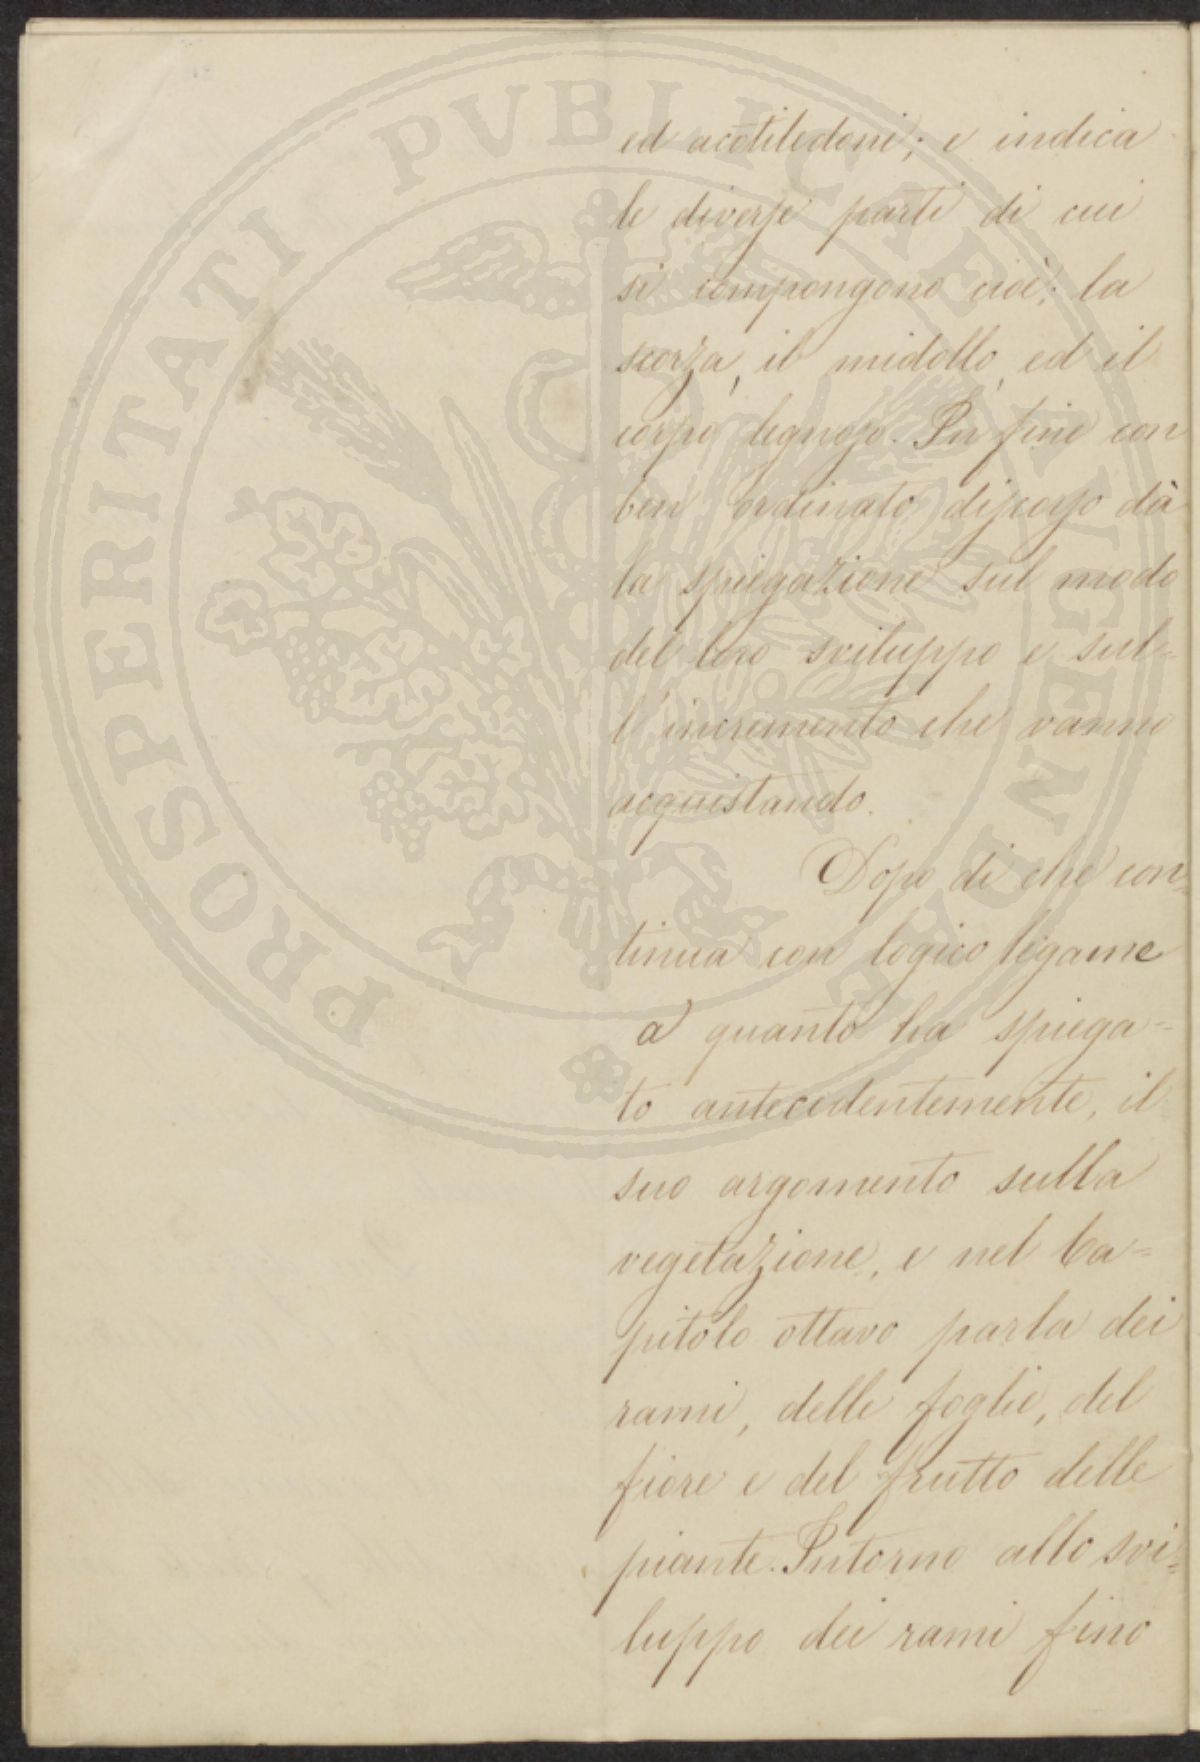 ed acotiledoni; e indica
le diverse parti di cui
si compongono cioè; la
scorza, il midollo, ed il
corpo legnoso. In fine con
ben ordinato discorso dà
la spiegazione sul modo
del loro sviluppo e sul=
l'incremento che vanno
acquistando.
Dopo di che con=
tinua con logico legame
a quanto ha spiega=
to antecedentemente, il
suo argomento sulla
vegetazione, e nel Ca=
pitolo ottavo parla dei
rami, delle foglie, del
fiore e del frutto delle
piante. Intorno allo svi=
luppo dei rami fino
PROSPERITATI PVBLICAE AVGENDAE